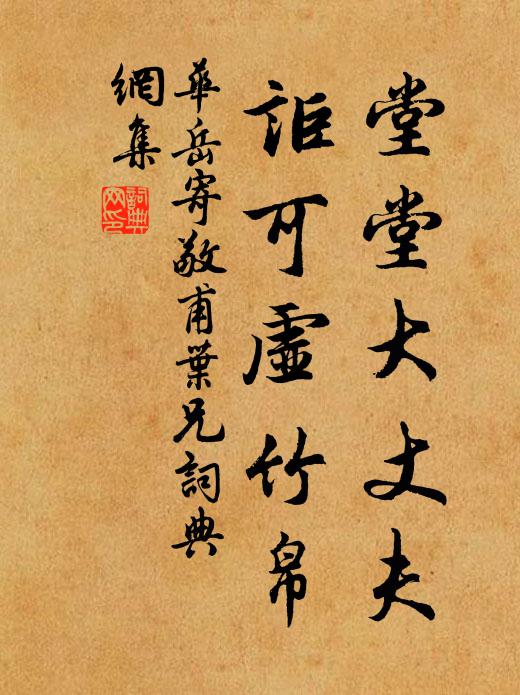 堂堂大丈夫
詎可虛竹帛
華岳寄敬甫葉兄詞典
網集
詞典
网印